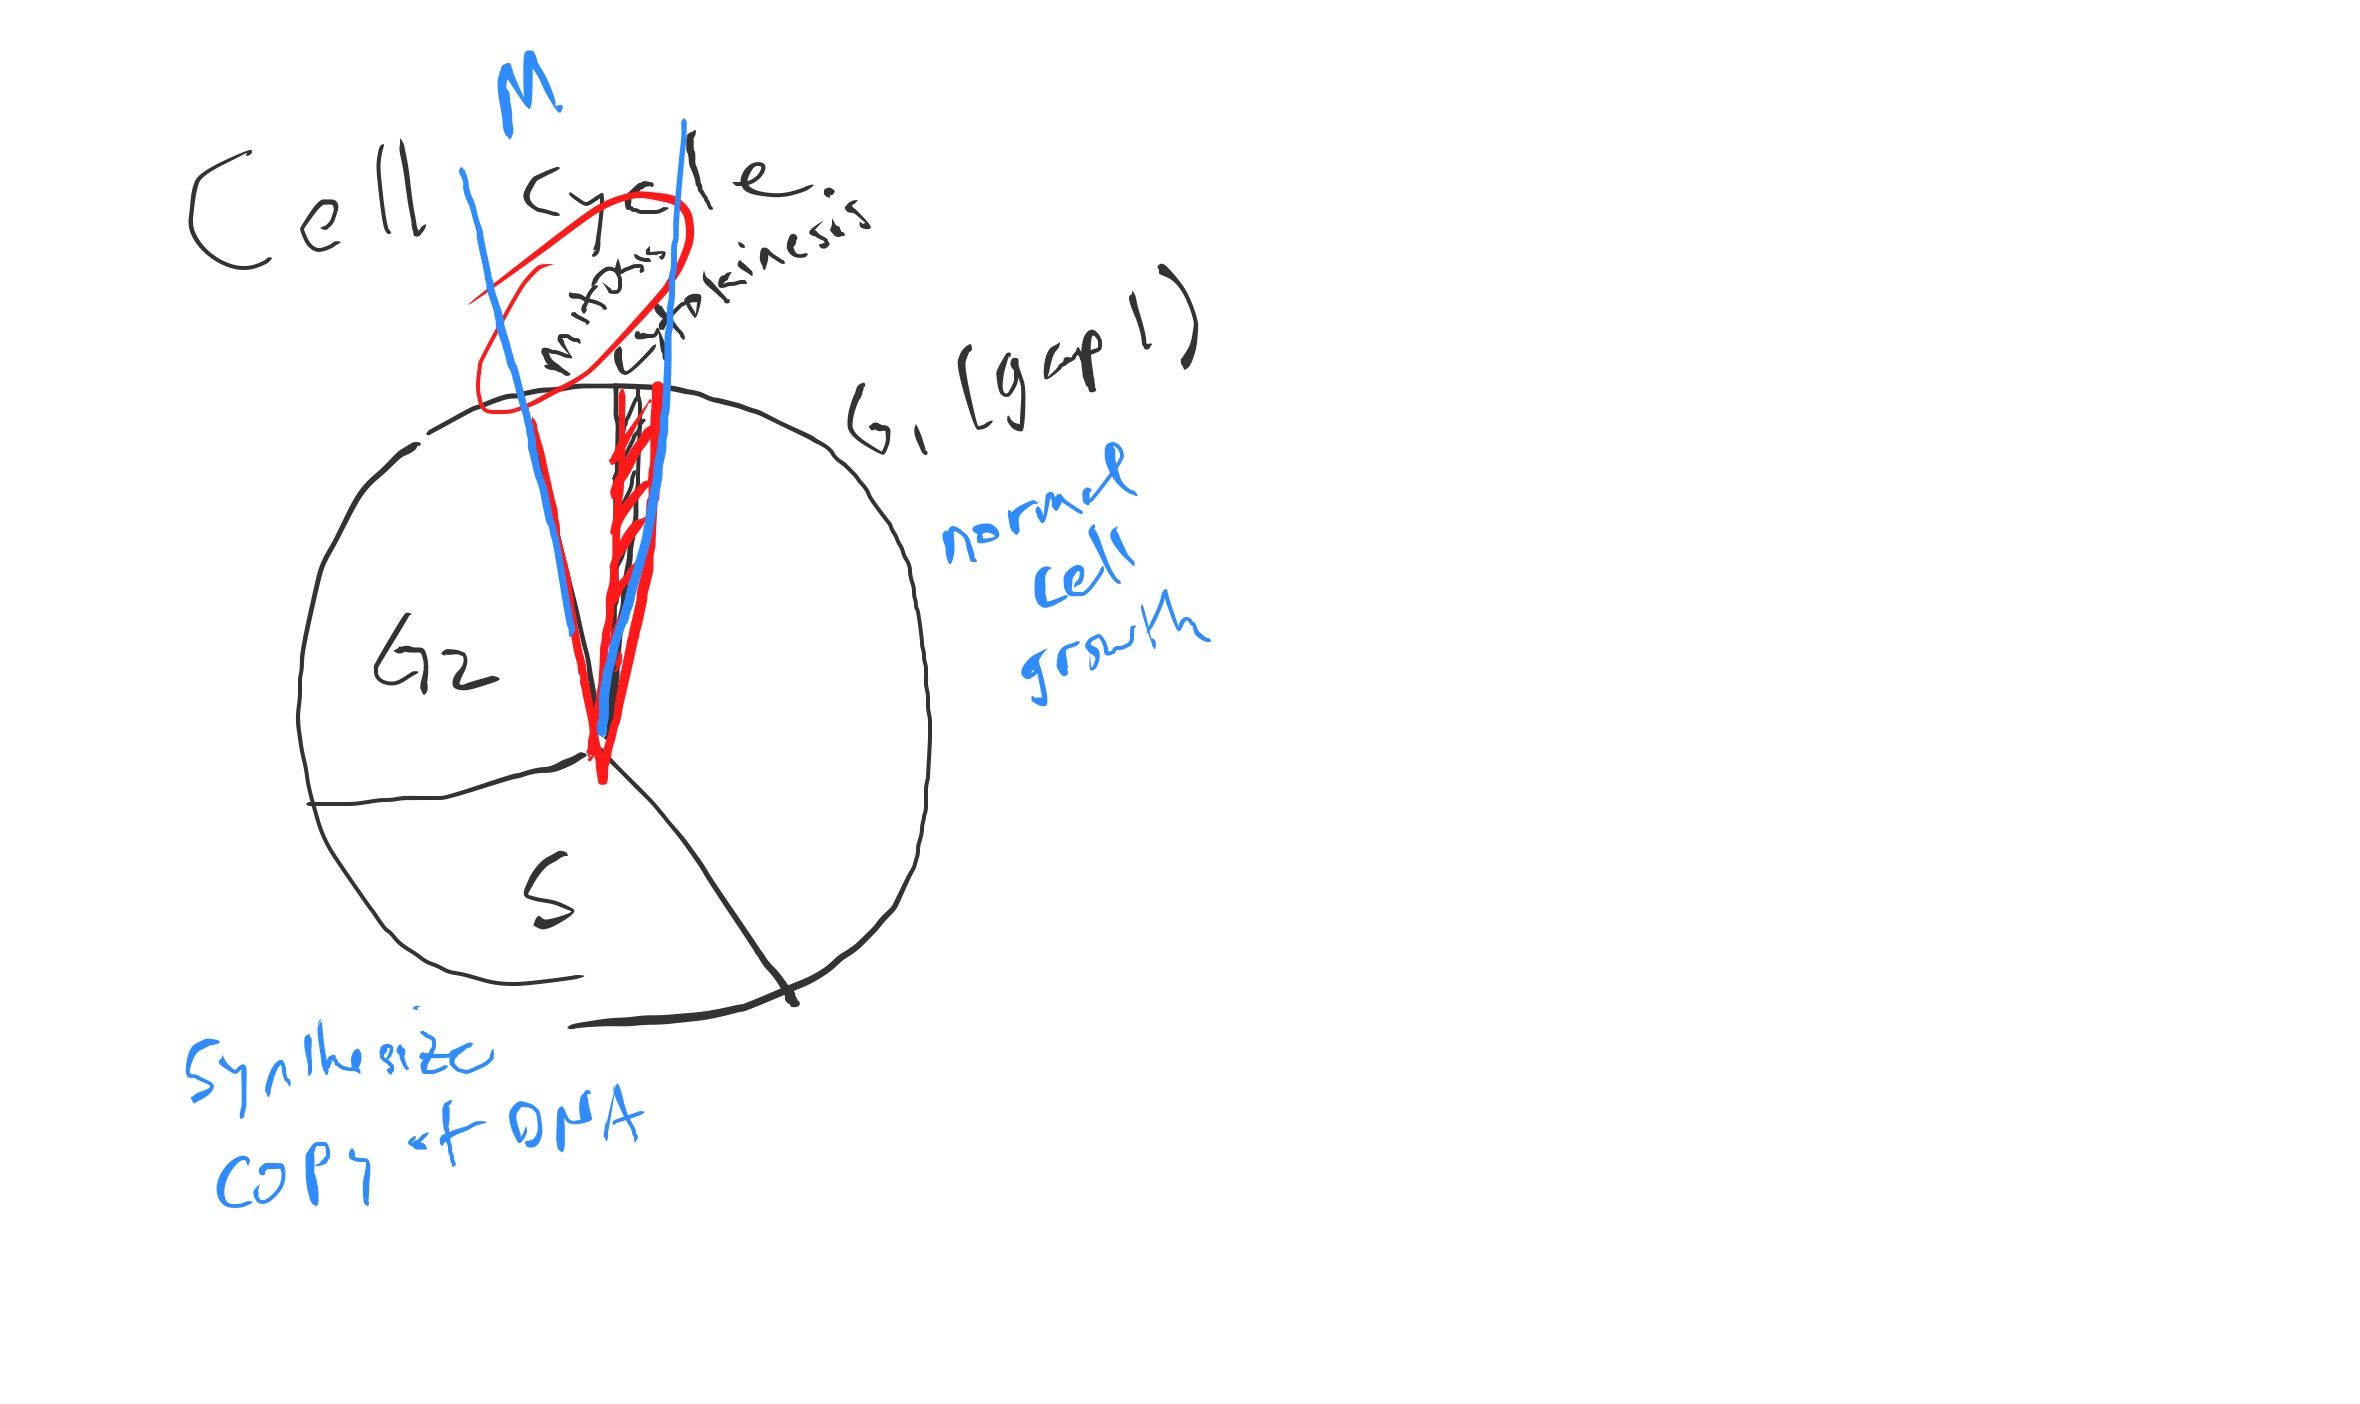 M
Cell cycle
Mitosis
Cytokinesis
G1 (gap 1)
normal
cell
growth
G2
S
Synthesize
copy of DNA